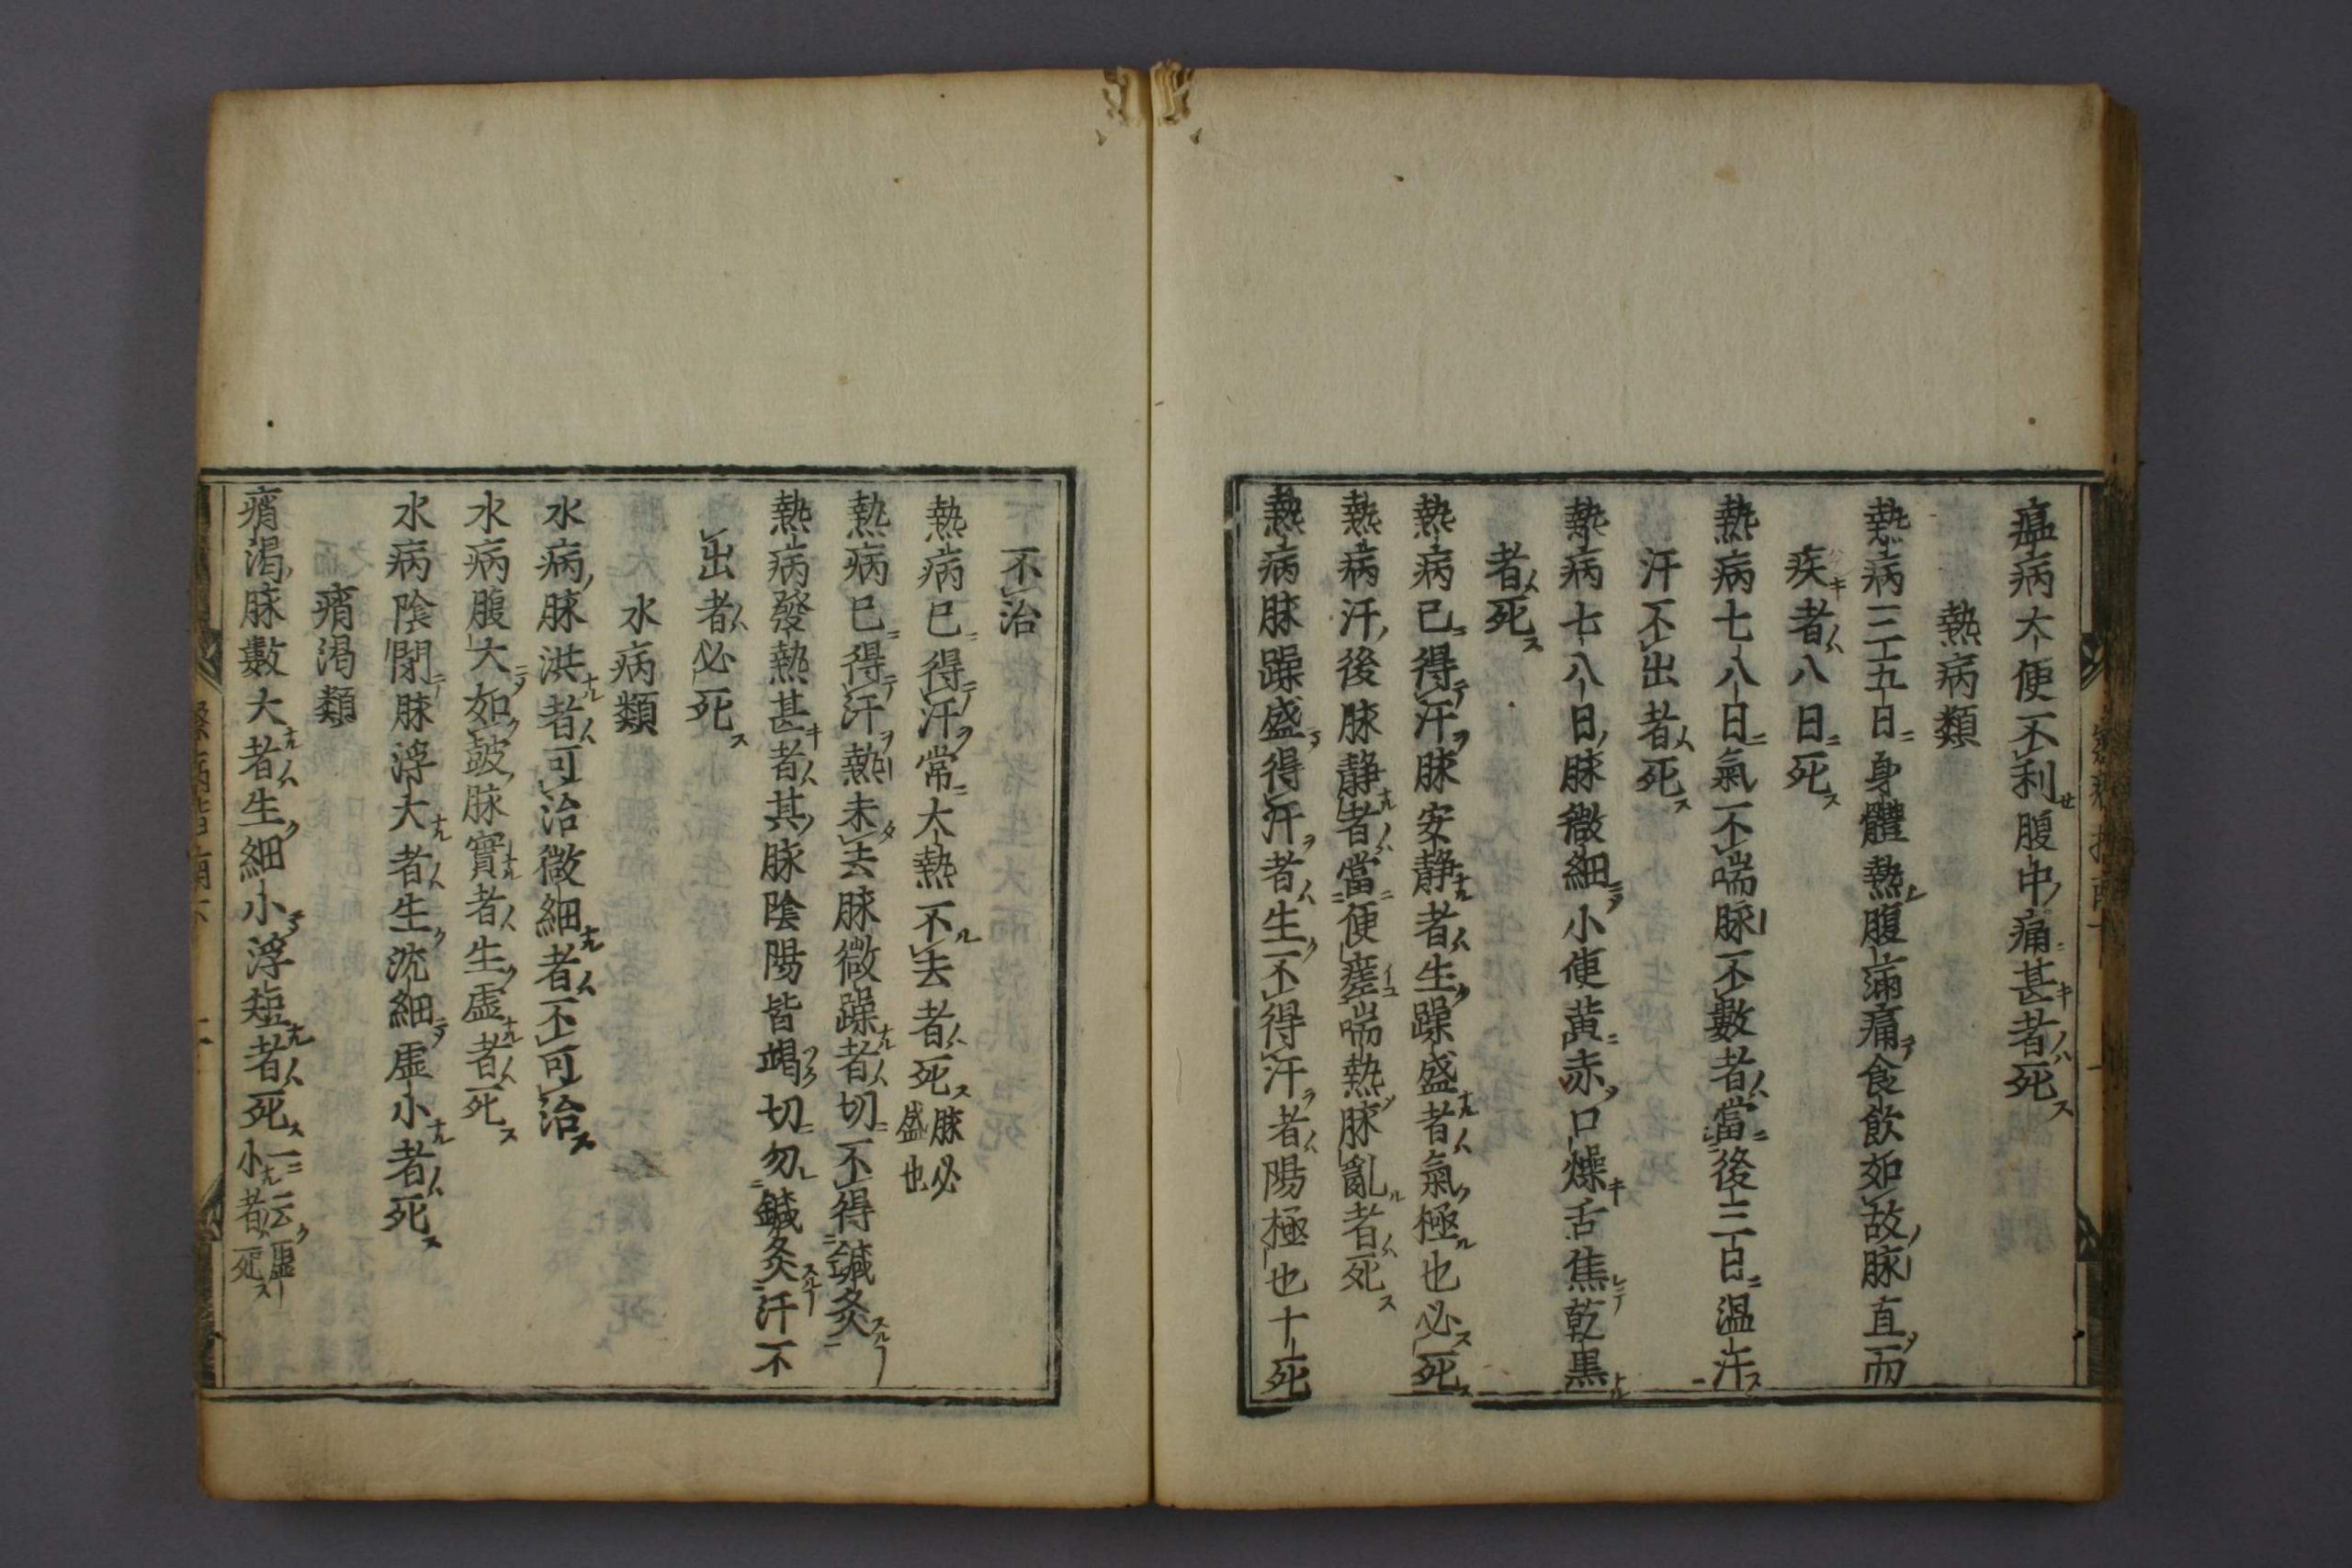 瘟病大便不利腹中痛甚者死
熱病類
熱病三五日身體熱腹滿痛食飲如故脉直而
疾者八日死
熱病七八日氣不喘脉不數者當後三日温汗
汗不出者死
熱病七八日脉微細小便黄赤口燥舌焦乾黒
者死
熱病已得汗脉安静者生躁盛者氣極也必死
熱病汗後脉静者當便瘥喘熱脉亂者死
熱病脉躁盛得汗者生不得汗者陽極也十死
不治
熱病已得汗常大熱不去者死脉必
盛也
熱病已得汗熱未去脉微躁者切不得鍼灸
熱病發熱甚者其脉陰陽皆竭切勿鍼灸汗不
出者必死
水病類
水病脉洪者可治微細者不可治
水病腹大如皷脉實者生虚者死
水病陰閉脉浮大者生沈細虚小者死
痟渇類
痟渇脉數大者生細小浮短者死一云虚
小者死